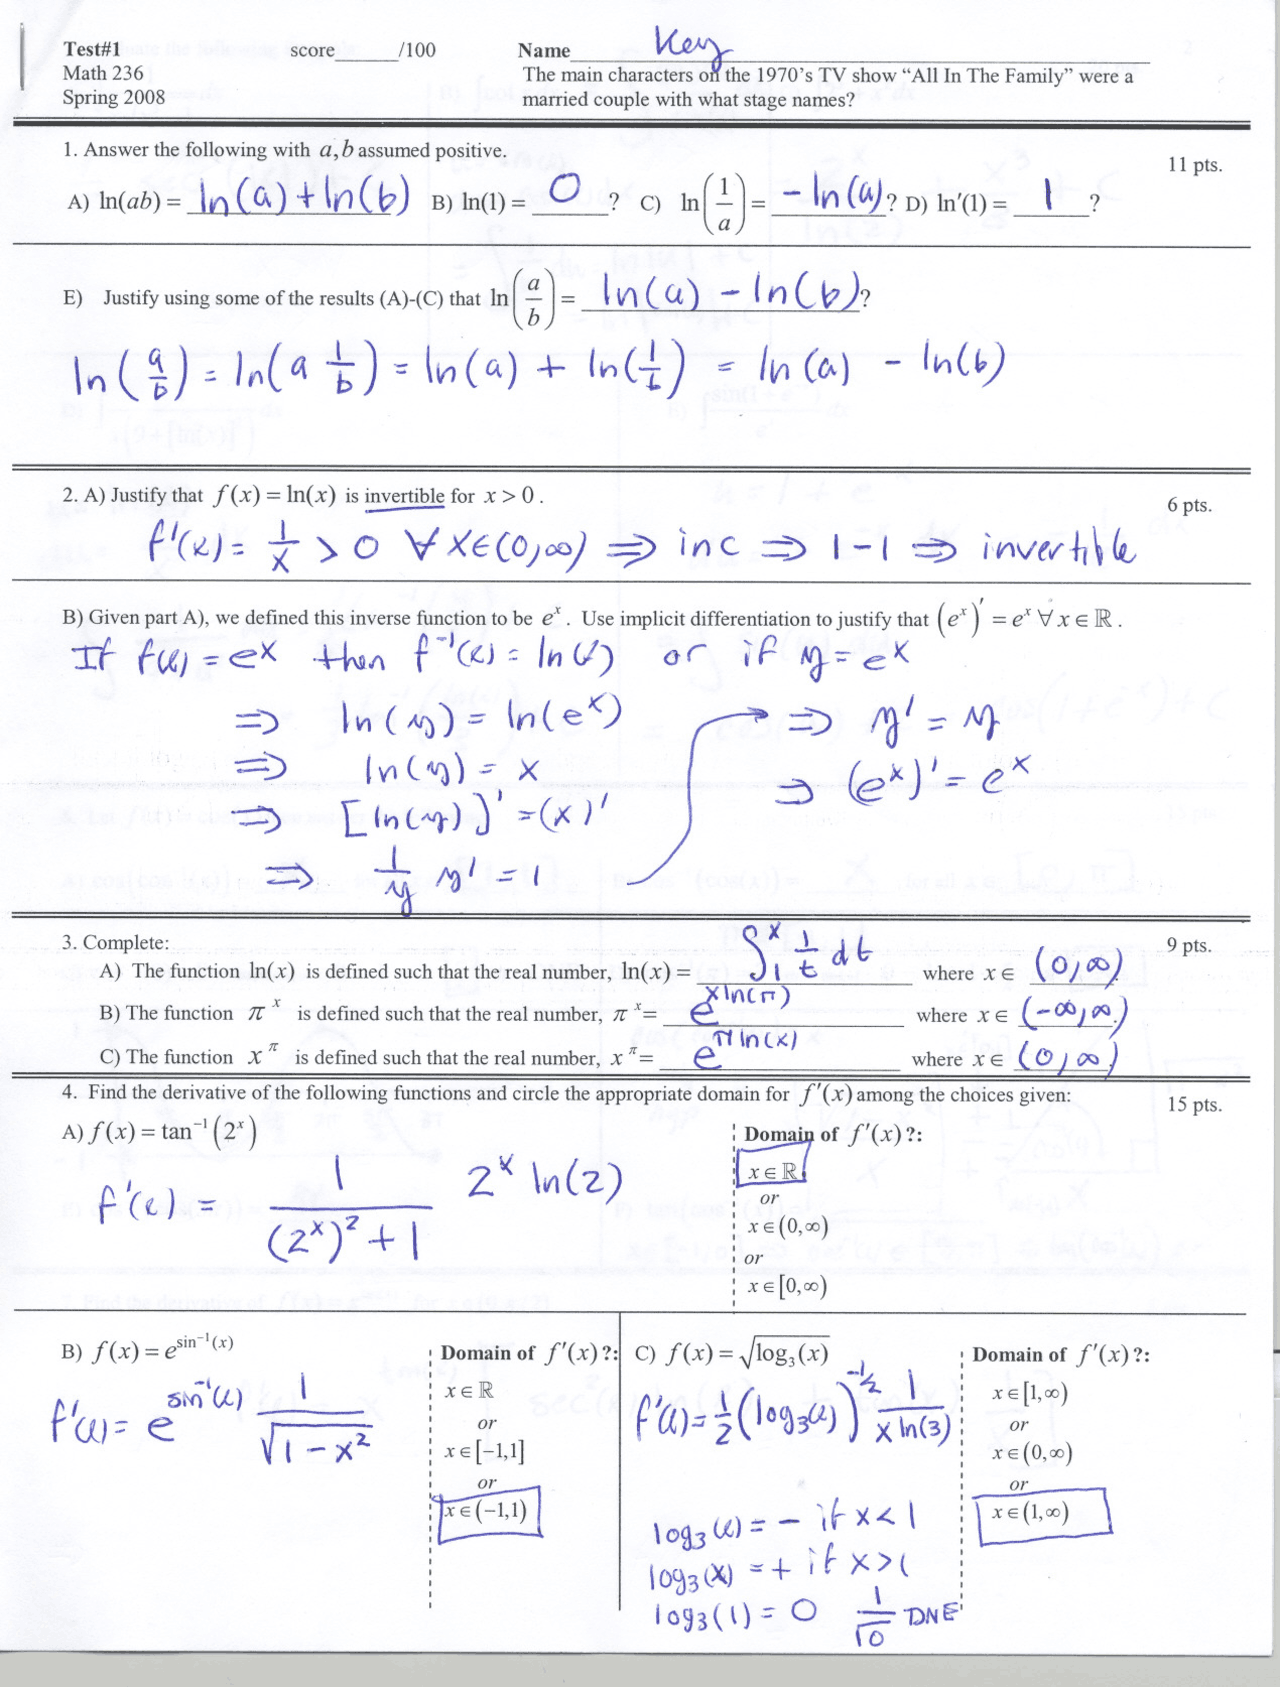 Test#1 score______/100 Name Key
Math 236 The main characters on the 1970's TV show "All In The Family" were a
Spring 2008 married couple with what stage names?
1. Answer the following with a, b assumed positive. 11 pts.
A) ln(ab) = ln(a)+ln(b) B) ln(1) = 0 ? C) ln(1/a) = -ln(a) ? D) ln'(1) = 1 ?
E) Justify using some of the results (A)-(C) that ln(a/b) = ln(a) - ln(b) ?
ln(a/b) = ln(a 1/b) = ln(a) + ln(1/b) = ln(a) - ln(b)
2. A) Justify that f(x) = ln(x) is invertible for x > 0. 6 pts.
f'(x) = 1/x > 0 ∀ x∈(0,∞) ⇒ inc ⇒ 1-1 ⇒ invertible
B) Given part A), we defined this inverse function to be e^x. Use implicit differentiation to justify that (e^x)' = e^x ∀ x ∈ ℝ.
If f(x) = e^x then f^-1(x) = ln(x) or if y = e^x
⇒ ln(y) = ln(e^x)
⇒ ln(y) = x
⇒ [ln(y)]' = (x)'
⇒ 1/y y' = 1
⇒ y' = y
⇒ (e^x)' = e^x
3. Complete: 9 pts.
A) The function ln(x) is defined such that the real number, ln(x) = ∫_1^x 1/t dt where x ∈ (0,∞)
B) The function π^x is defined such that the real number, π^x = e^(x ln(π)) where x ∈ (-∞,∞)
C) The function x^π is defined such that the real number, x^π = e^(π ln(x)) where x ∈ (0,∞)
4. Find the derivative of the following functions and circle the appropriate domain for f'(x) among the choices given: 15 pts.
A) f(x) = tan^-1(2^x)
f'(x) = 1/((2^x)^2 + 1) 2^x ln(2)
Domain of f'(x)?:
x ∈ ℝ
or
x ∈ (0,∞)
or
x ∈ [0,∞)
B) f(x) = e^(sin^-1(x))
f'(x) = e^(sin^-1(x)) 1/√(1-x^2)
Domain of f'(x)?:
x ∈ ℝ
or
x ∈ [-1,1]
or
x ∈ (-1,1)
C) f(x) = √(log_3(x))
f'(x) = 1/2 (log_3(x))^(-1/2) 1/(x ln(3))
log_3(x) = - if x < 1
log_3(x) = + if x > 1
log_3(1) = 0 1/√0 DNE
Domain of f'(x)?:
x ∈ [1,∞)
or
x ∈ (0,∞)
or
x ∈ (1,∞)